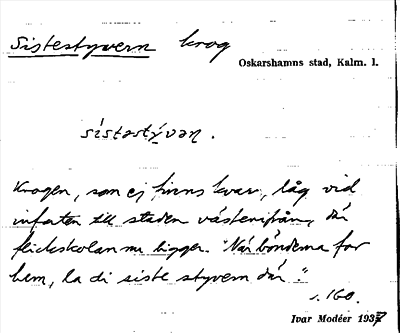 Sistestyvern krog
Oskarshamns stad, Kalm. l.
sístəstý̱vəṇ.
Krogen, som ej finns kvar, låg vid
infarten till staden västerifrån, där
flickskolan nu ligger. "När bönderna for
hem, la di siste styvern där."
s. 160.
Ivar Modéer 1937